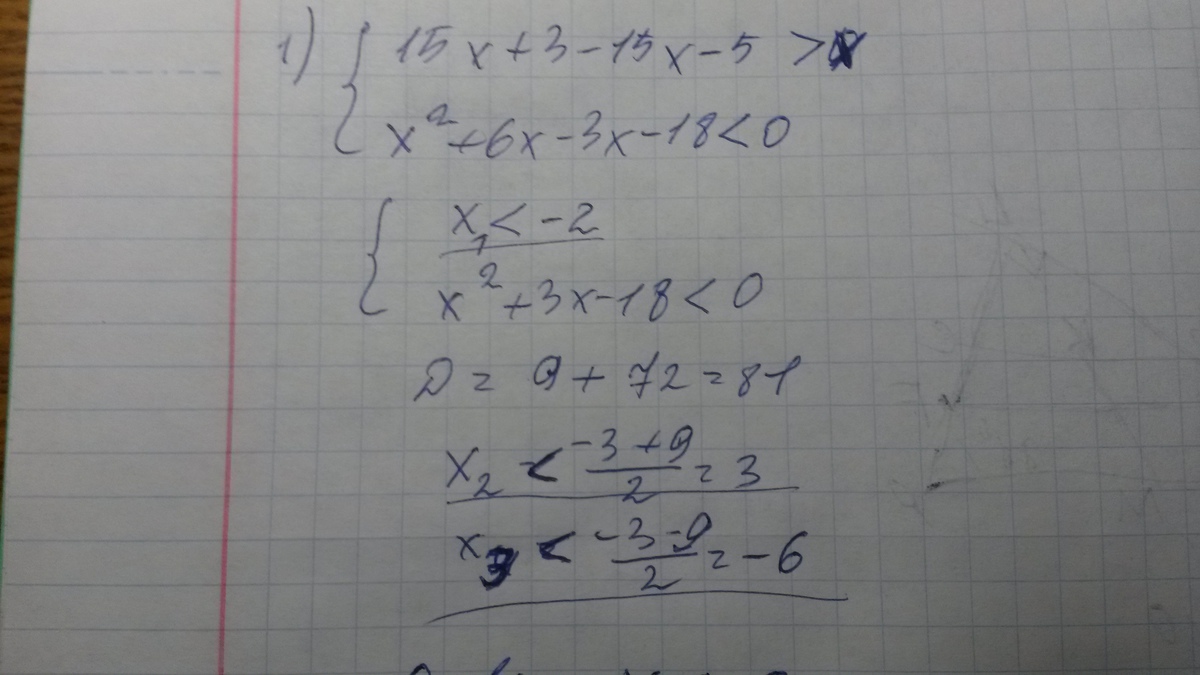 1) { 15x+3-15x-5 > x
x²+6x-3x-18<0
{ x₁ < -2
x²+3x-18<0
D = 9+72=81
x₂ < (-3+9)/2 = 3
x₃ < (-3-9)/2 = -6